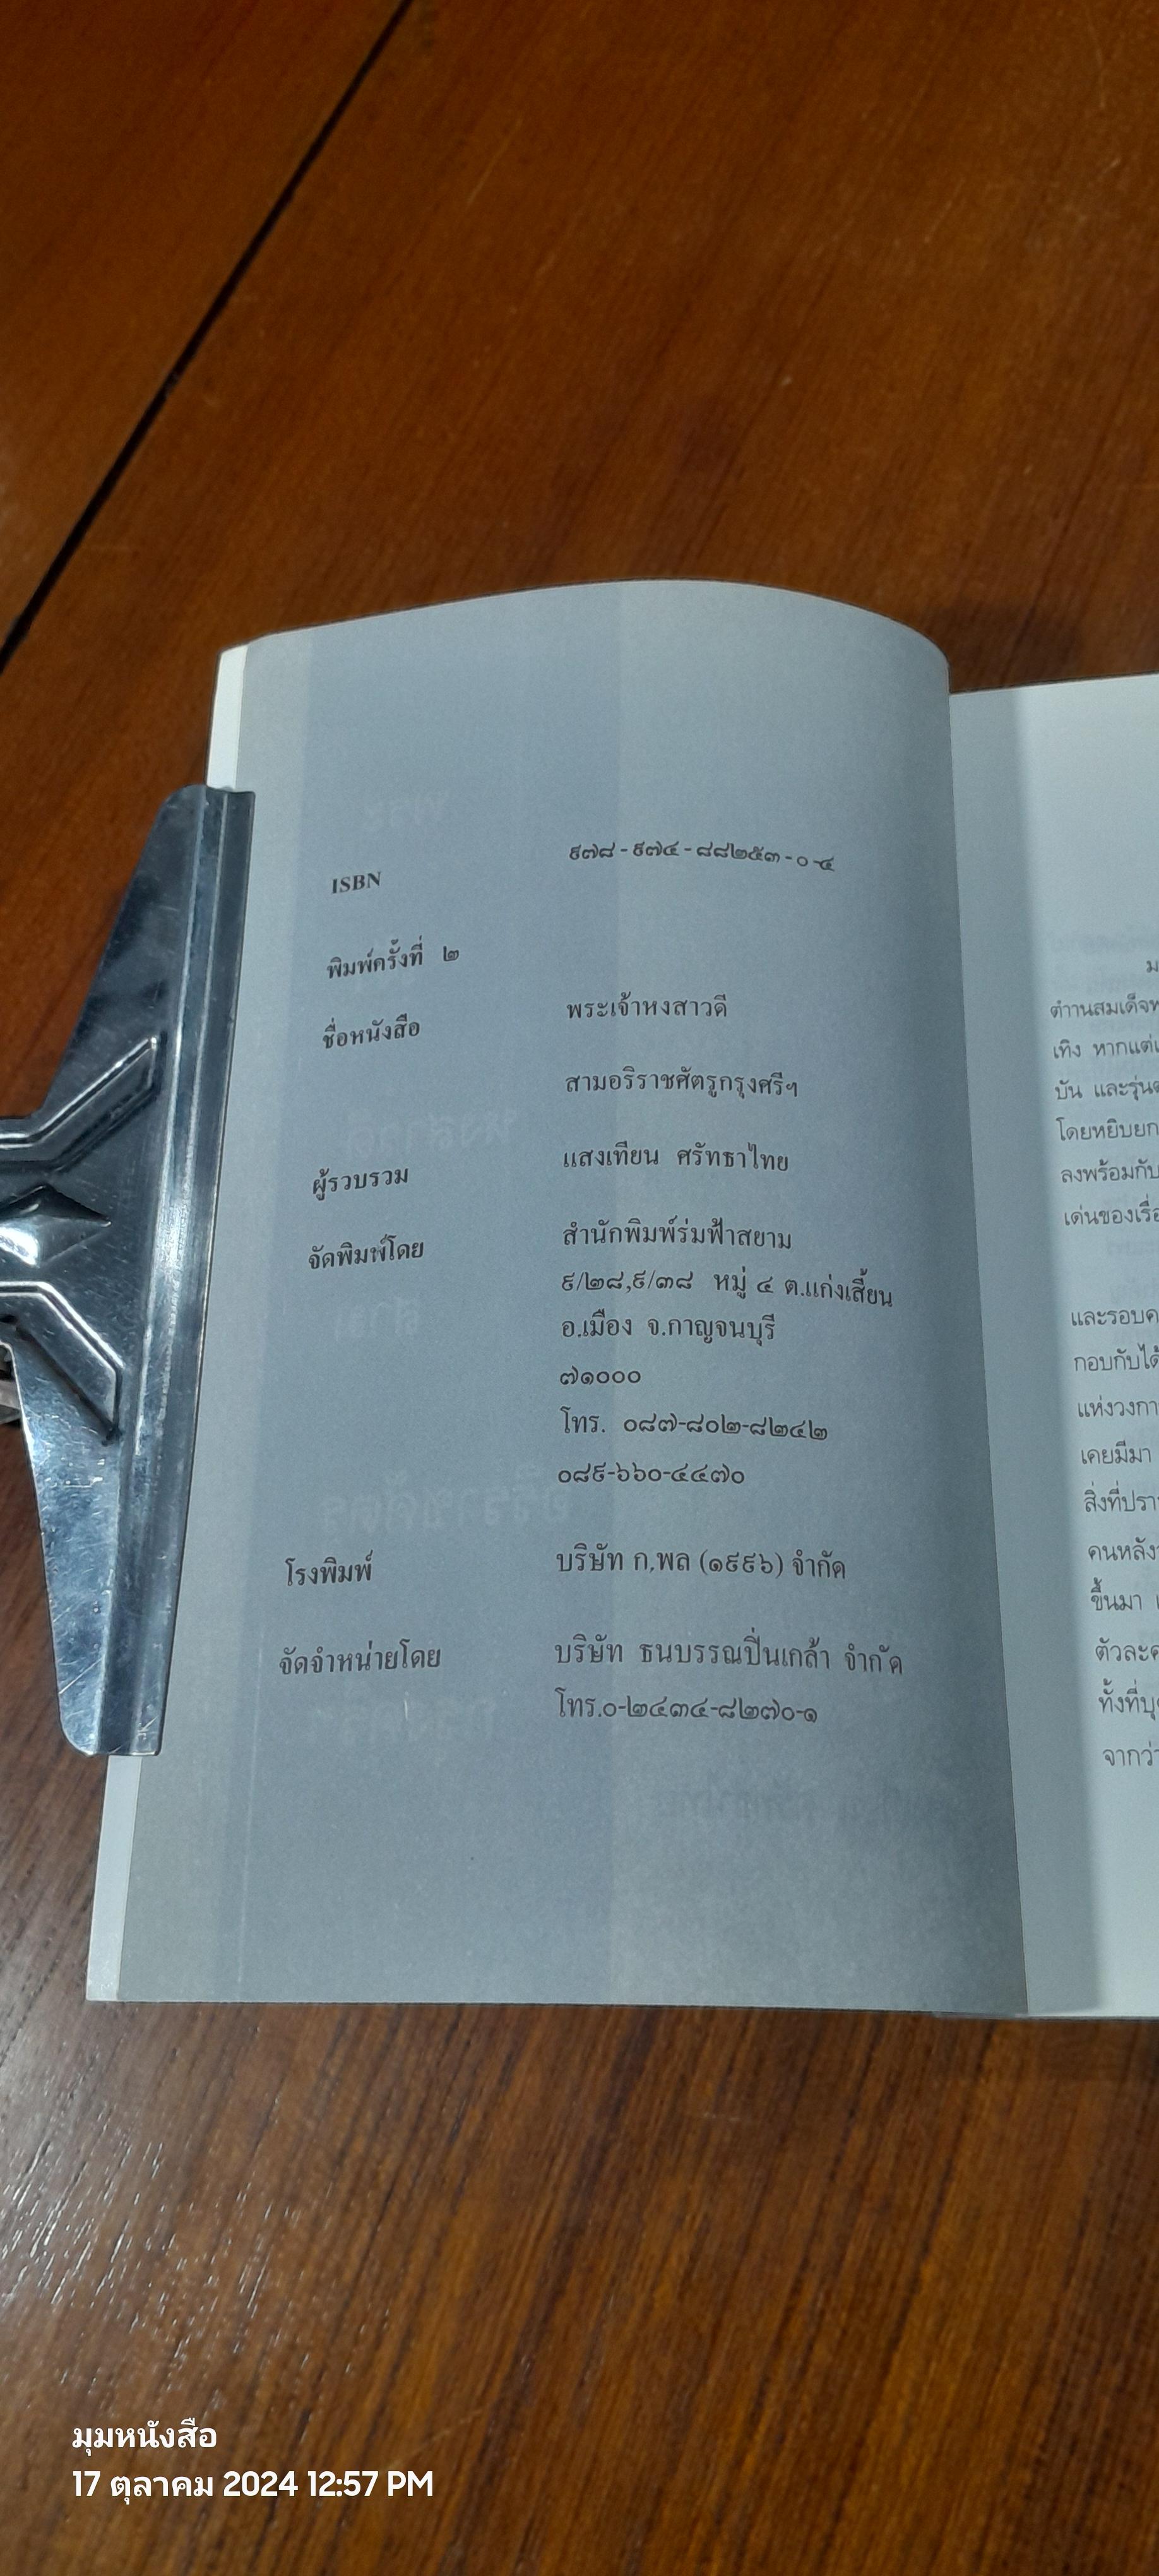 ISBN ๙๗๘ - ๙๗๔ - ๘๘๒๕๓ - ๐ -๔
พิมพ์ครั้งที่ ๒
ชื่อหนังสือ พระเจ้าหงสาวดี
สามอริราชศัตรูกรุงศรีฯ
ผู้รวบรวม แสงเทียน ศรัทธาไทย
จัดพิมพ์โดย สำนักพิมพ์ร่มฟ้าสยาม
๙/๒๘,๙/๓๘ หมู่ ๔ ต.แก่งเสี้ยน
อ.เมือง จ.กาญจนบุรี
๗๑๐๐๐
โทร. ๐๘๗-๘๐๒-๘๒๔๒
๐๘๙-๖๖๐-๔๔๗๐
โรงพิมพ์ บริษัท ก.พล (๑๙๙๖) จำกัด
จัดจำหน่ายโดย บริษัท ธนบรรณปิ่นเกล้า จำกัด
โทร.๐-๒๔๓๔-๘๒๗๐-๑
ตำานสมเด็จ
เทิง หากแต่
บัน และรุ่น
โดยหยิบยก
ลงพร้อมกับ
เด่นของเรื่อ
และรอบค
กอบกับได้
แห่งวงกา
เคยมีมา
สิ่งที่ปรา
คนหลัง
ขึ้นมา
ตัวละค
ทั้งที่บุ
จากว่า
มุมหนังสือ
17 ตุลาคม 2024 12:57 PM